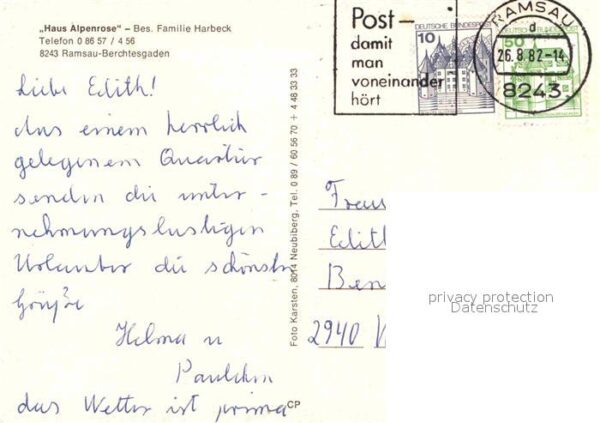 „Haus Alpenrose" – Bes. Familie Harbeck
Telefon 0 86 57 / 4 56
8243 Ramsau-Berchtesgaden
Liebe Edith!
Aus einem herrlich
gelegenem Quartier
senden die unter-
nehmungslustigen
Urlauber die schönsten
Grüße
Helma u
Paulchen
das Wetter ist prima
CP
Foto Karsten, 8014 Neubiberg, Tel. 0 89 / 60 56 70 + 4 48 33 33
Post-
damit
man
voneinander
hört
DEUTSCHE BUNDESPOST
10
50
RAMSAU
d
26.8.82-14
8243
Frau
Edith
Ben
2940
privacy protection
Datenschutz